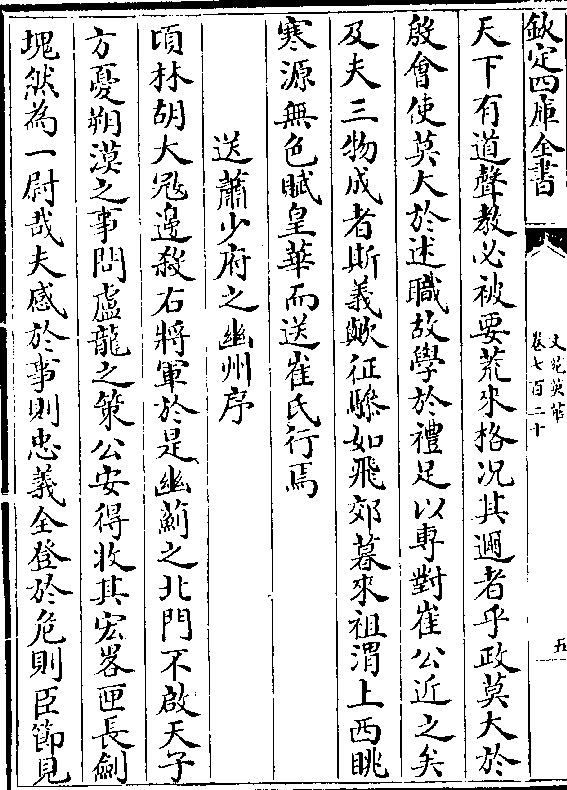 欽定四庫全書
文苑英華
卷七百二十
五
天下有道聲教必被要荒來格况其邇者乎政莫大於
殷會使莫大於述職故學於禮足以専對崔公近之矣
及夫三物成者斯義歟征驂如飛郊暮來祖渭上西眺
寒源無色賦皇華而送崔氏行焉
送蕭少府之幽州序
頃林胡大冦邊殺右將軍於是幽薊之北門不啟天子
方憂朔漠之事問盧龍之策公安得收其宏畧匣長劍
塊然為一尉哉夫感於事則忠義全登於危則臣節見